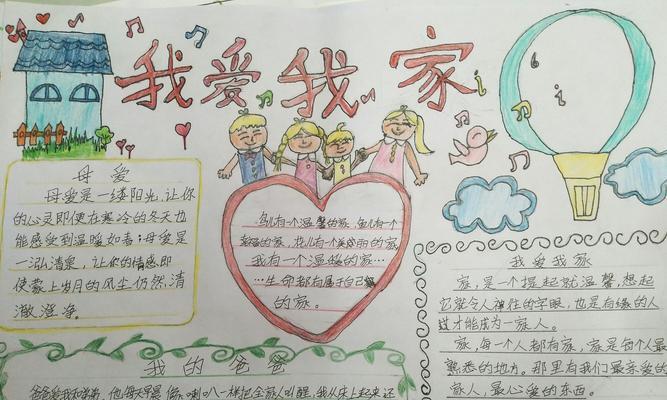 我爱我家
母爱
母爱是一缕阳光,让你
的心灵即使在寒冷的冬天也
能感受到温暖如春;母爱是
一泓清泉,让你的情感即
使蒙上岁月的风尘仍然清
澈澄净。
鸟儿有一个温馨的家,鱼儿有一个
的家,花儿有一个美丽的家,
我有一个温暖的家…
…生命都有属于自己
的家。
我爱我家
家,是一个提起就温馨,想起
它就令人神往的字眼,也是有缘的人
才能成为一家人。
家,每一个人都有家,家是每个人最
熟悉的地方。那里有我们最亲爱的
家人,最心爱的东西。
我的爸爸
爸爸爱我和弟弟,他每天早晨像喇叭一样把全家人叫醒,我从床上起来还